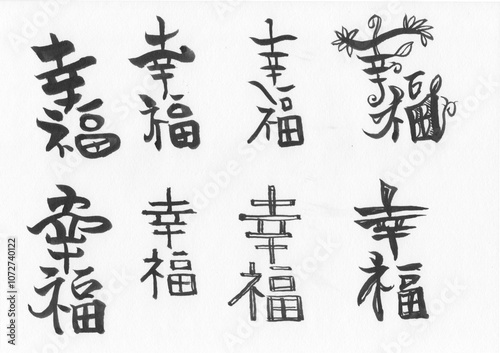 幸福
幸福
幸福
幸福
幸福
幸福
幸福
幸福
Adobe Stock | #1072740122
Adobe Stock